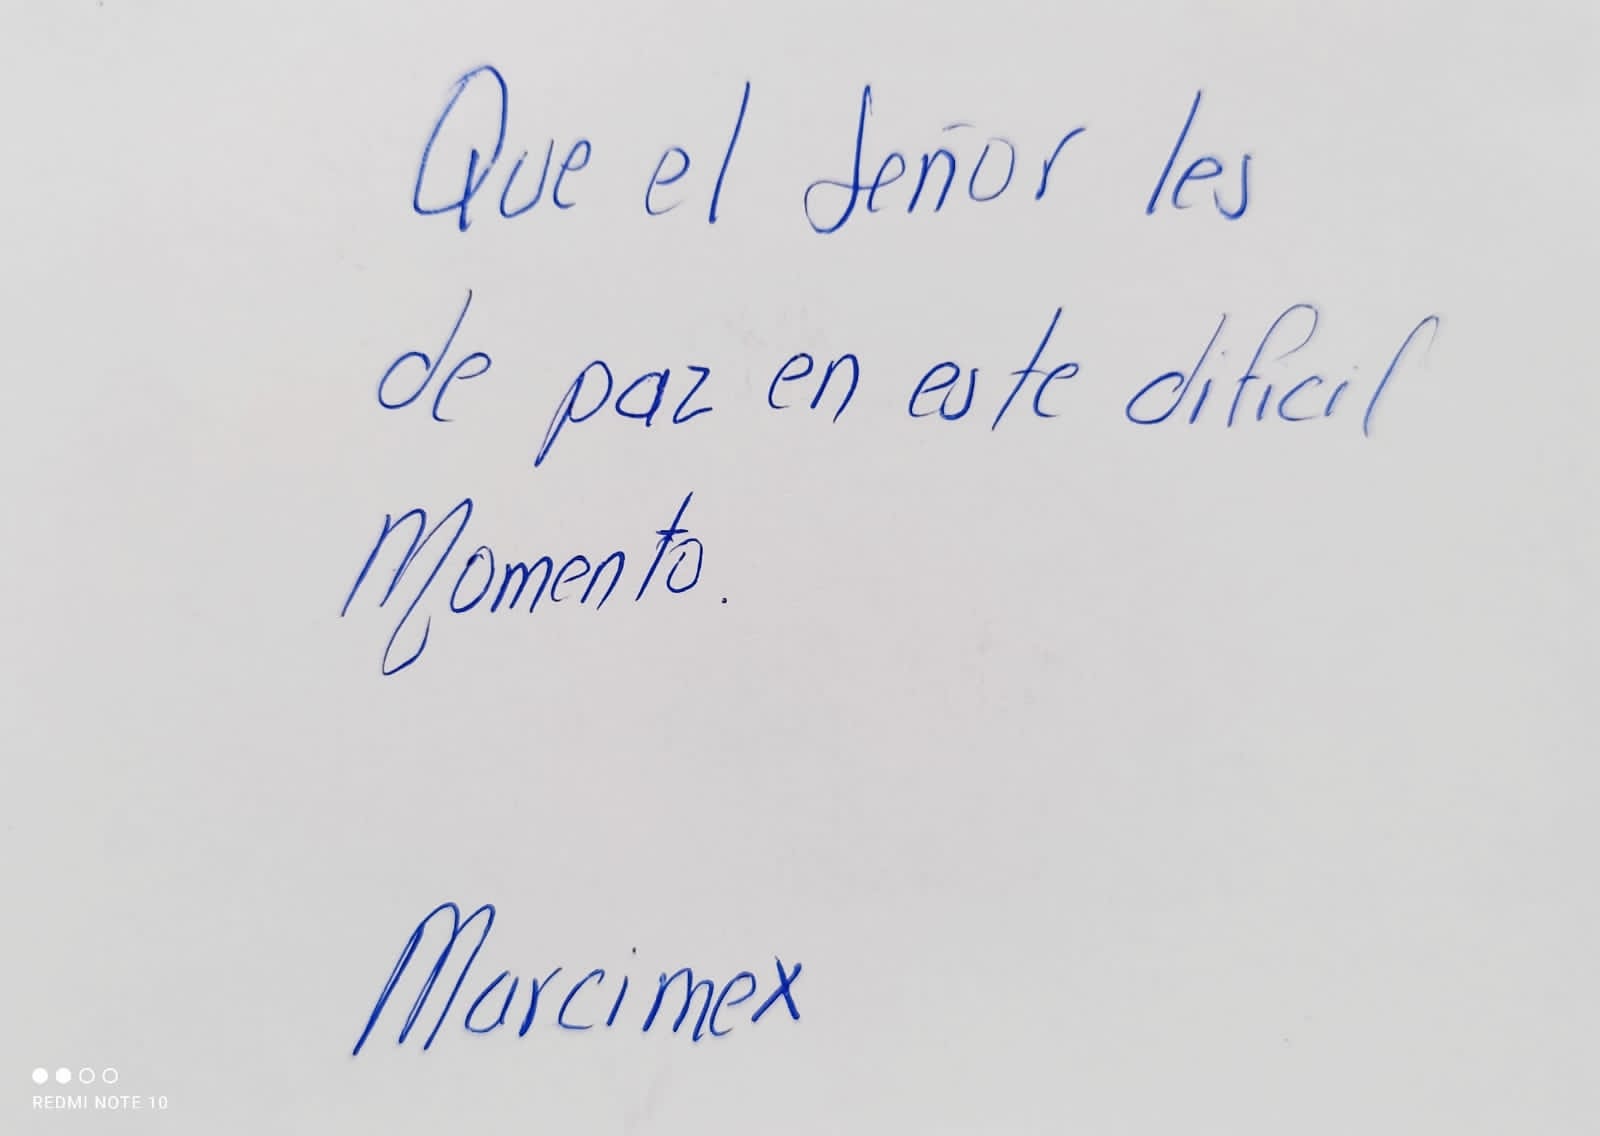 Que el Señor les
de paz en este dificil
Momento.
Marcimex
REDMI NOTE 10